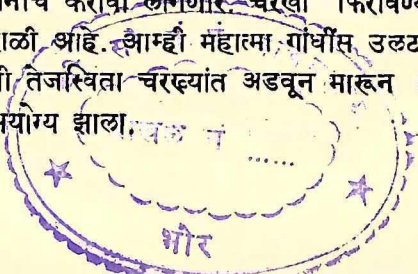 करावा लागणार. चरखा फिरविण्य
ाळी आहे. आम्ही महात्मा गांधींस उलट
ी तेजस्विता चरख्यांत अडवून मारून
योग्य झाला.
नं ......
भोर